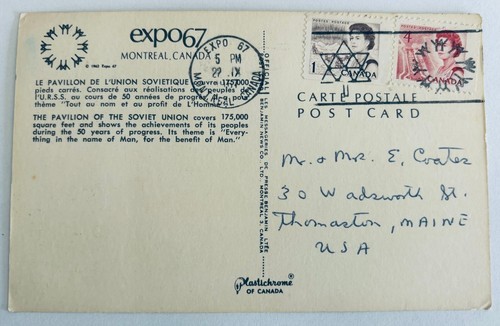 expo67
MONTREAL, CANADA
© 1963 Expo 67
LE PAVILLON DE L'UNION SOVIETIQUE couvre 175,000
pieds carrés. Consacré aux réalisations des peuples de
l'U.R.S.S. au cours de 50 années de progrès,
thème "Tout au nom et au profit de L'Homme
THE PAVILION OF THE SOVIET UNION covers 175,000
square feet and shows the achievements of its peoples
during the 50 years of progress. Its theme is "Every-
thing in the name of Man, for the benefit of Man."
EXPO 67
5 PM
29 IX
MONTREAL CANADA
OFFICIAL
LES MESSAGERIES DE PRESSE BENJAMIN LTÉE
BENJAMIN NEWS CO. LTD. MONTREAL 3, CANADA
POSTES POSTAGE
1
CANADA
POSTES POSTAGE
4
CANADA
CARTE POSTALE
POST CARD
Mr. & Mrs. E. Coates
30 Wadsworth St.
Thomaston, MAINE
USA
Plastichrome®
OF CANADA